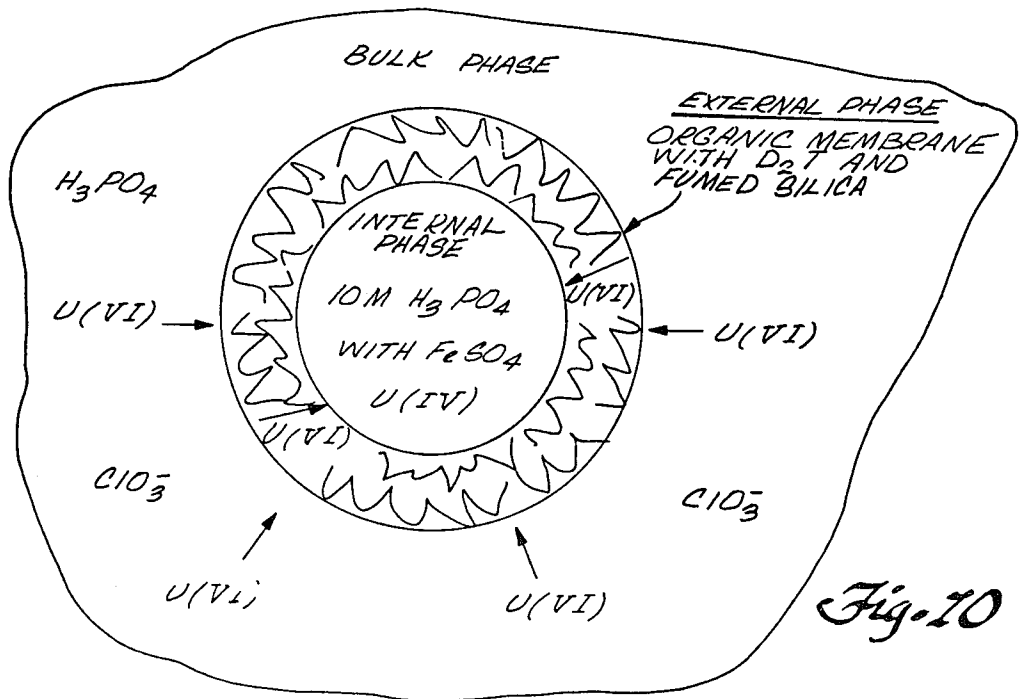 BULK PHASE
EXTERNAL PHASE
ORGANIC MEMBRANE
WITH D₂T AND
FUMED SILICA
H₃PO₄
INTERNAL
PHASE
10M H₃PO₄
WITH FeSO₄
U(IV)
U(VI)
U(VI)
U(VI)
U(VI)
ClO₃⁻
ClO₃⁻
U(Vi)
U(VI)
Fig. 10